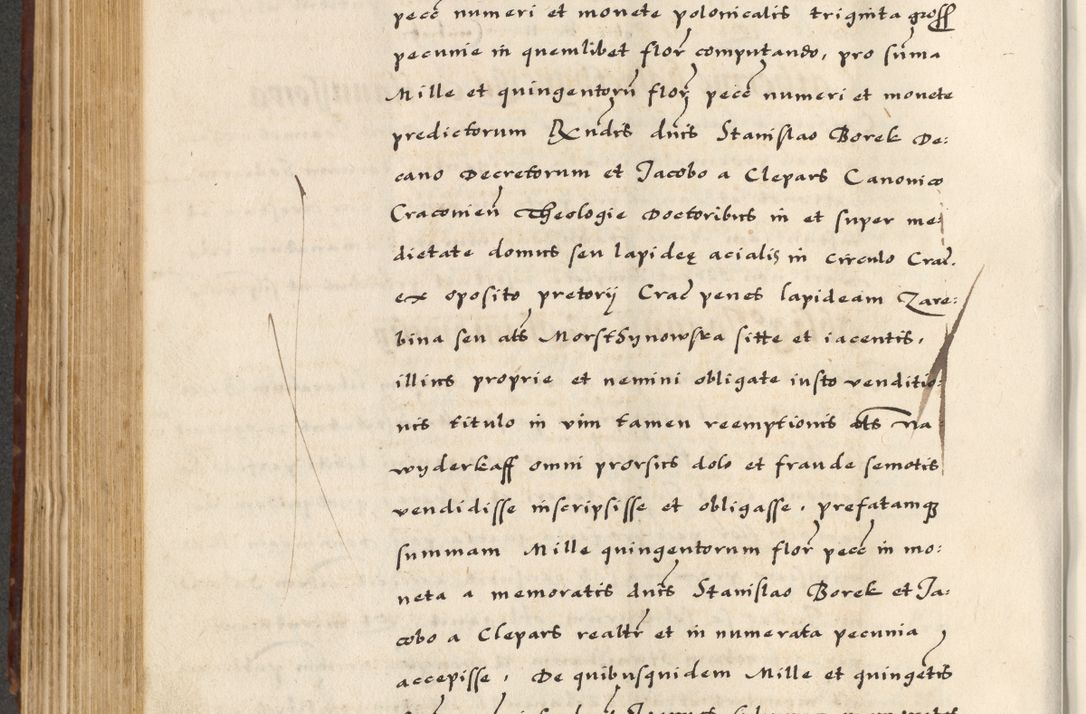 pecc numeri et monete polonicalis triginta gross
pecunie in quemlibet flor computando, pro suma
Mille et quingentoru flor pecc numeri et monete
predictorum Rndis dnis Stanislao Borek De:
cano Decretorum et Jacobo a Clepars Canonico
Craconien Theologie Doctoribus in et super me:
dietate domus seu lapidee acialis in circulo Crac.
ex oposito pretorij Crac penes lapideam Zare:
bina seu als Morsthynowska sitte et iacentis,
illius proprie et nemini obligate iusto venditio:
nis titulo in vim tamen reemptionis als na
wyderkaff omni prorsus dolo et fraude semotis
vendidisse inscripsisse et obligasse, prefatamq
summam Mille quingentorum flor pecc in mo:
neta a memoratis dnis Stanislao Borek et Ja:
cobo a Clepars realtr et in numerata pecunia
accepisse, De quibusquidem Mille et quingetis